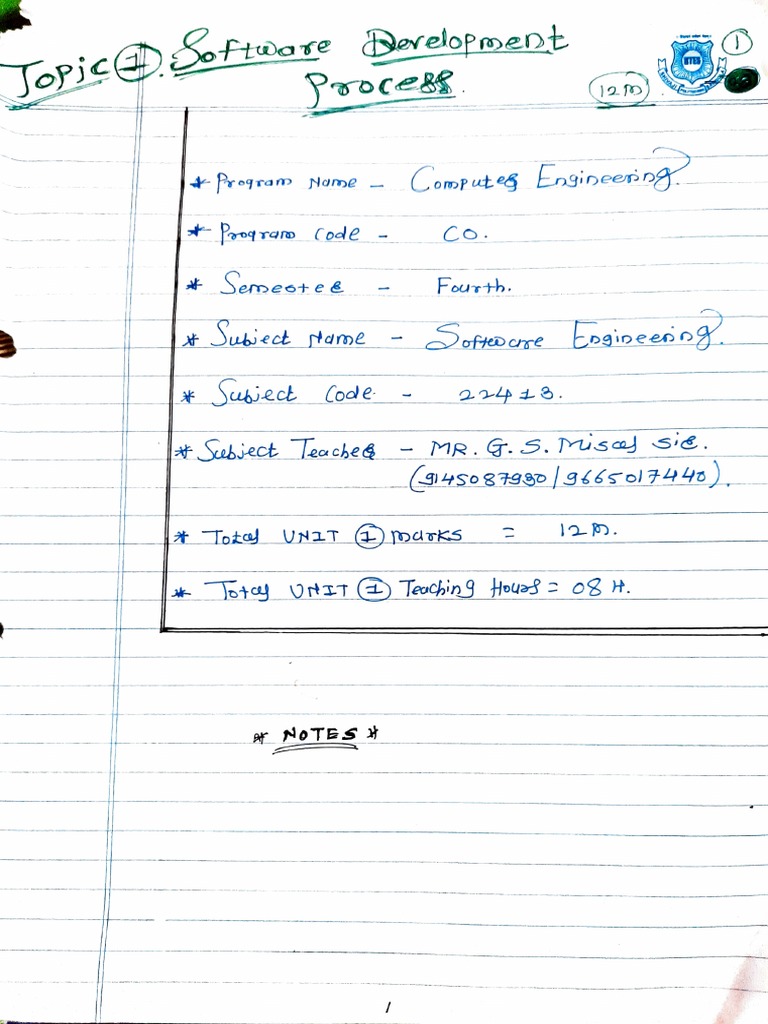 Topic ①. Software Development ①
Process. 12M
BTES
* Program Name - Computer Engineering.
* Program Code - CO.
* Semester - Fourth.
* Subject Name - Software Engineering.
* Subject Code - 22413.
* Subject Teacher - MR. G. S. Misal Sir.
(9145087930/9665017440).
* Total UNIT ① marks = 12M.
* Total UNIT ① Teaching Hours = 08 H.
* NOTES *
1